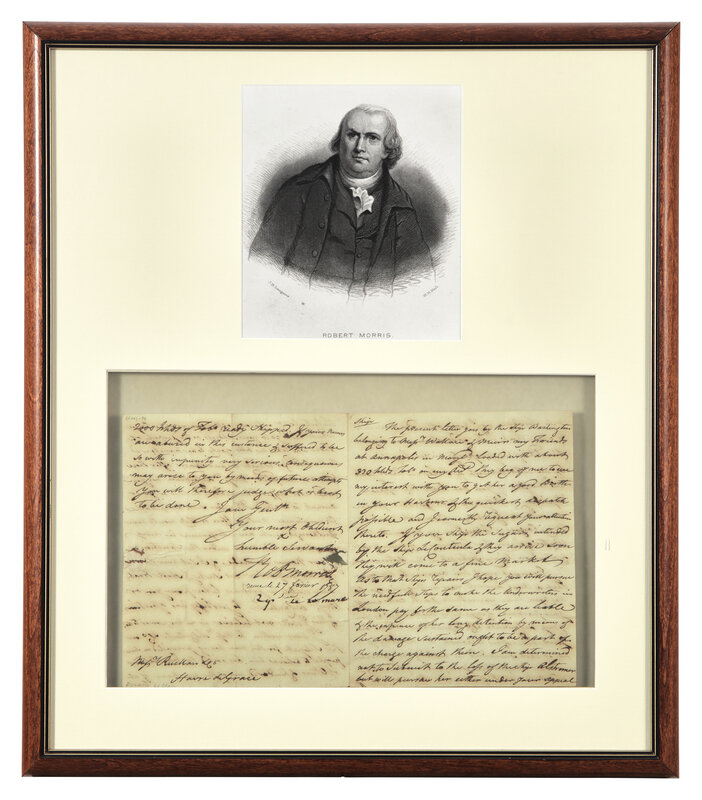 ROBERT MORRIS.
2000 hhds of Tobo ready Shipped, if
are natured in this instance & suffered to be
so with impunity very serious Consequences
may arise to you by means of future attempts
You will therefore judge what is best
to be done. I am Gentn
Your most Obedient
humble Servant
Robt Morris
27
Messrs Ruellan & Co
Havre de Grace
Ship
The present letter goes by the Ship Washington
belonging to Messrs Wallace & Muir my Friends
at Annapolis in Maryd Loaded with about
370 hhds Tobo on my They beg of me to use
my interest with you to get her a good Berth
in your Harbour & the quickest dispatch
possible and I earnestly request your attention
thereto. If you Ship the Sugars intended
by the Ship & they arrive soon
they will come to a fine Market
As to that Ships repairs I hope you will pursue
the needful steps to make the Underwriters in
London pay for the same as they are liable
& the expence of her long detention by means of
the damage sustained ought to be a part of
the charge against them. I am determined
not to submit to the loss of the Ship Alderman
but will pursue her either under your appeal